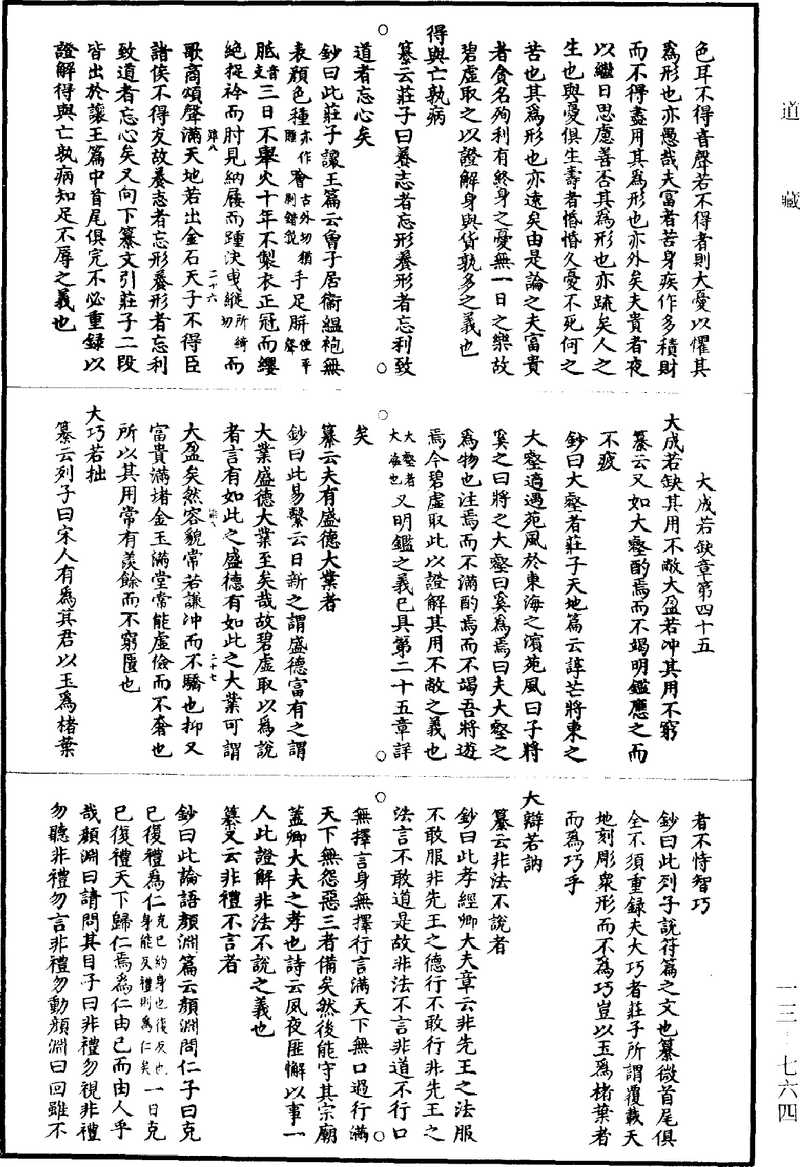 道藏
一三—七六四
色耳不得音聲若不得者則大憂以懼其
爲形也亦愚哉夫富者苦身疾作多積財
而不得盡用其爲形也亦外矣夫貴者夜
以繼日思慮善否其爲形也亦疏矣人之
生也與憂俱生壽者惛惛久憂不死何之
苦也其爲形也亦遠矣由是論之夫富貴
者貪名殉利有終身之憂無一日之樂故
碧虛取之以證解身與貨孰多之義也
得與亡孰病
纂云莊子曰養志者忘形養形者忘利致
道者忘心矣
鈔曰此莊子讓王篇云曾子居衞緼袍無
表顏色種亦作腫噲古外切猶剩錯說手足胼便平聲
胝音支三日不舉火十年不製衣正冠而纓
絕捉衿而肘見納屨而踵決曳縰所綺切而
歌商頌聲滿天地若出金石天子不得臣
諸侯不得友故養志者忘形養形者忘利
致道者忘心矣又向下纂文引莊子二段
皆出於讓王篇中首尾俱完不必重録以
證解得與亡孰病知足不辱之義也
大成若缺章第四十五
大成若缺其用不敝大盈若冲其用不窮
纂云又如大壑酌焉而不竭明鑑應之而
不疲
鈔曰大壑者莊子天地篇云諄芒將東之
大壑適遇苑風於東海之濱苑風曰子將
奚之曰將之大壑曰奚爲焉曰夫大壑之
爲物也注焉而不滿酌焉而不竭吾將遊
焉今碧虛取此以證解其用不敝之義也
大壑者大海也又明鑑之義已具第二十五章詳
矣
纂云夫有盛德大業者
鈔曰此易繫云日新之謂盛德富有之謂
大業盛德大業至矣哉故碧虛取以爲說
者言有如此之盛德有如此之大業可謂
大盈矣然容貌常若謙冲而不驕也抑又
富貴滿堵金玉滿堂常能虛儉而不奢也
所以其用常有羡餘而不窮匱也
大巧若拙
纂云列子曰宋人有爲其君以玉爲楮葉
者不恃智巧
鈔曰此列子說符篇之文也纂微首尾俱
全不須重録夫大巧者莊子所謂覆載天
地刻彫衆形而不爲巧豈以玉爲楮葉者
而爲巧乎
大辯若訥
纂云非法不說者
鈔曰此孝經卿大夫章云非先王之法服
不敢服非先王之德行不敢行非先王之
法言不敢道是故非法不言非道不行口
無擇言身無擇行言滿天下無口過行滿
天下無怨惡三者備矣然後能守其宗廟
蓋卿大夫之孝也詩云夙夜匪懈以事一
人此證解非法不說之義也
纂又云非禮不言者
鈔曰此論語顏淵篇云顏淵問仁子曰克
己復禮爲仁克己約身也復反也身能反禮則爲仁矣一日克
己復禮天下歸仁焉爲仁由己而由人乎
哉顏淵曰請問其目子曰非禮勿視非禮
勿聽非禮勿言非禮勿動顏淵曰回雖不
二十六
二十七